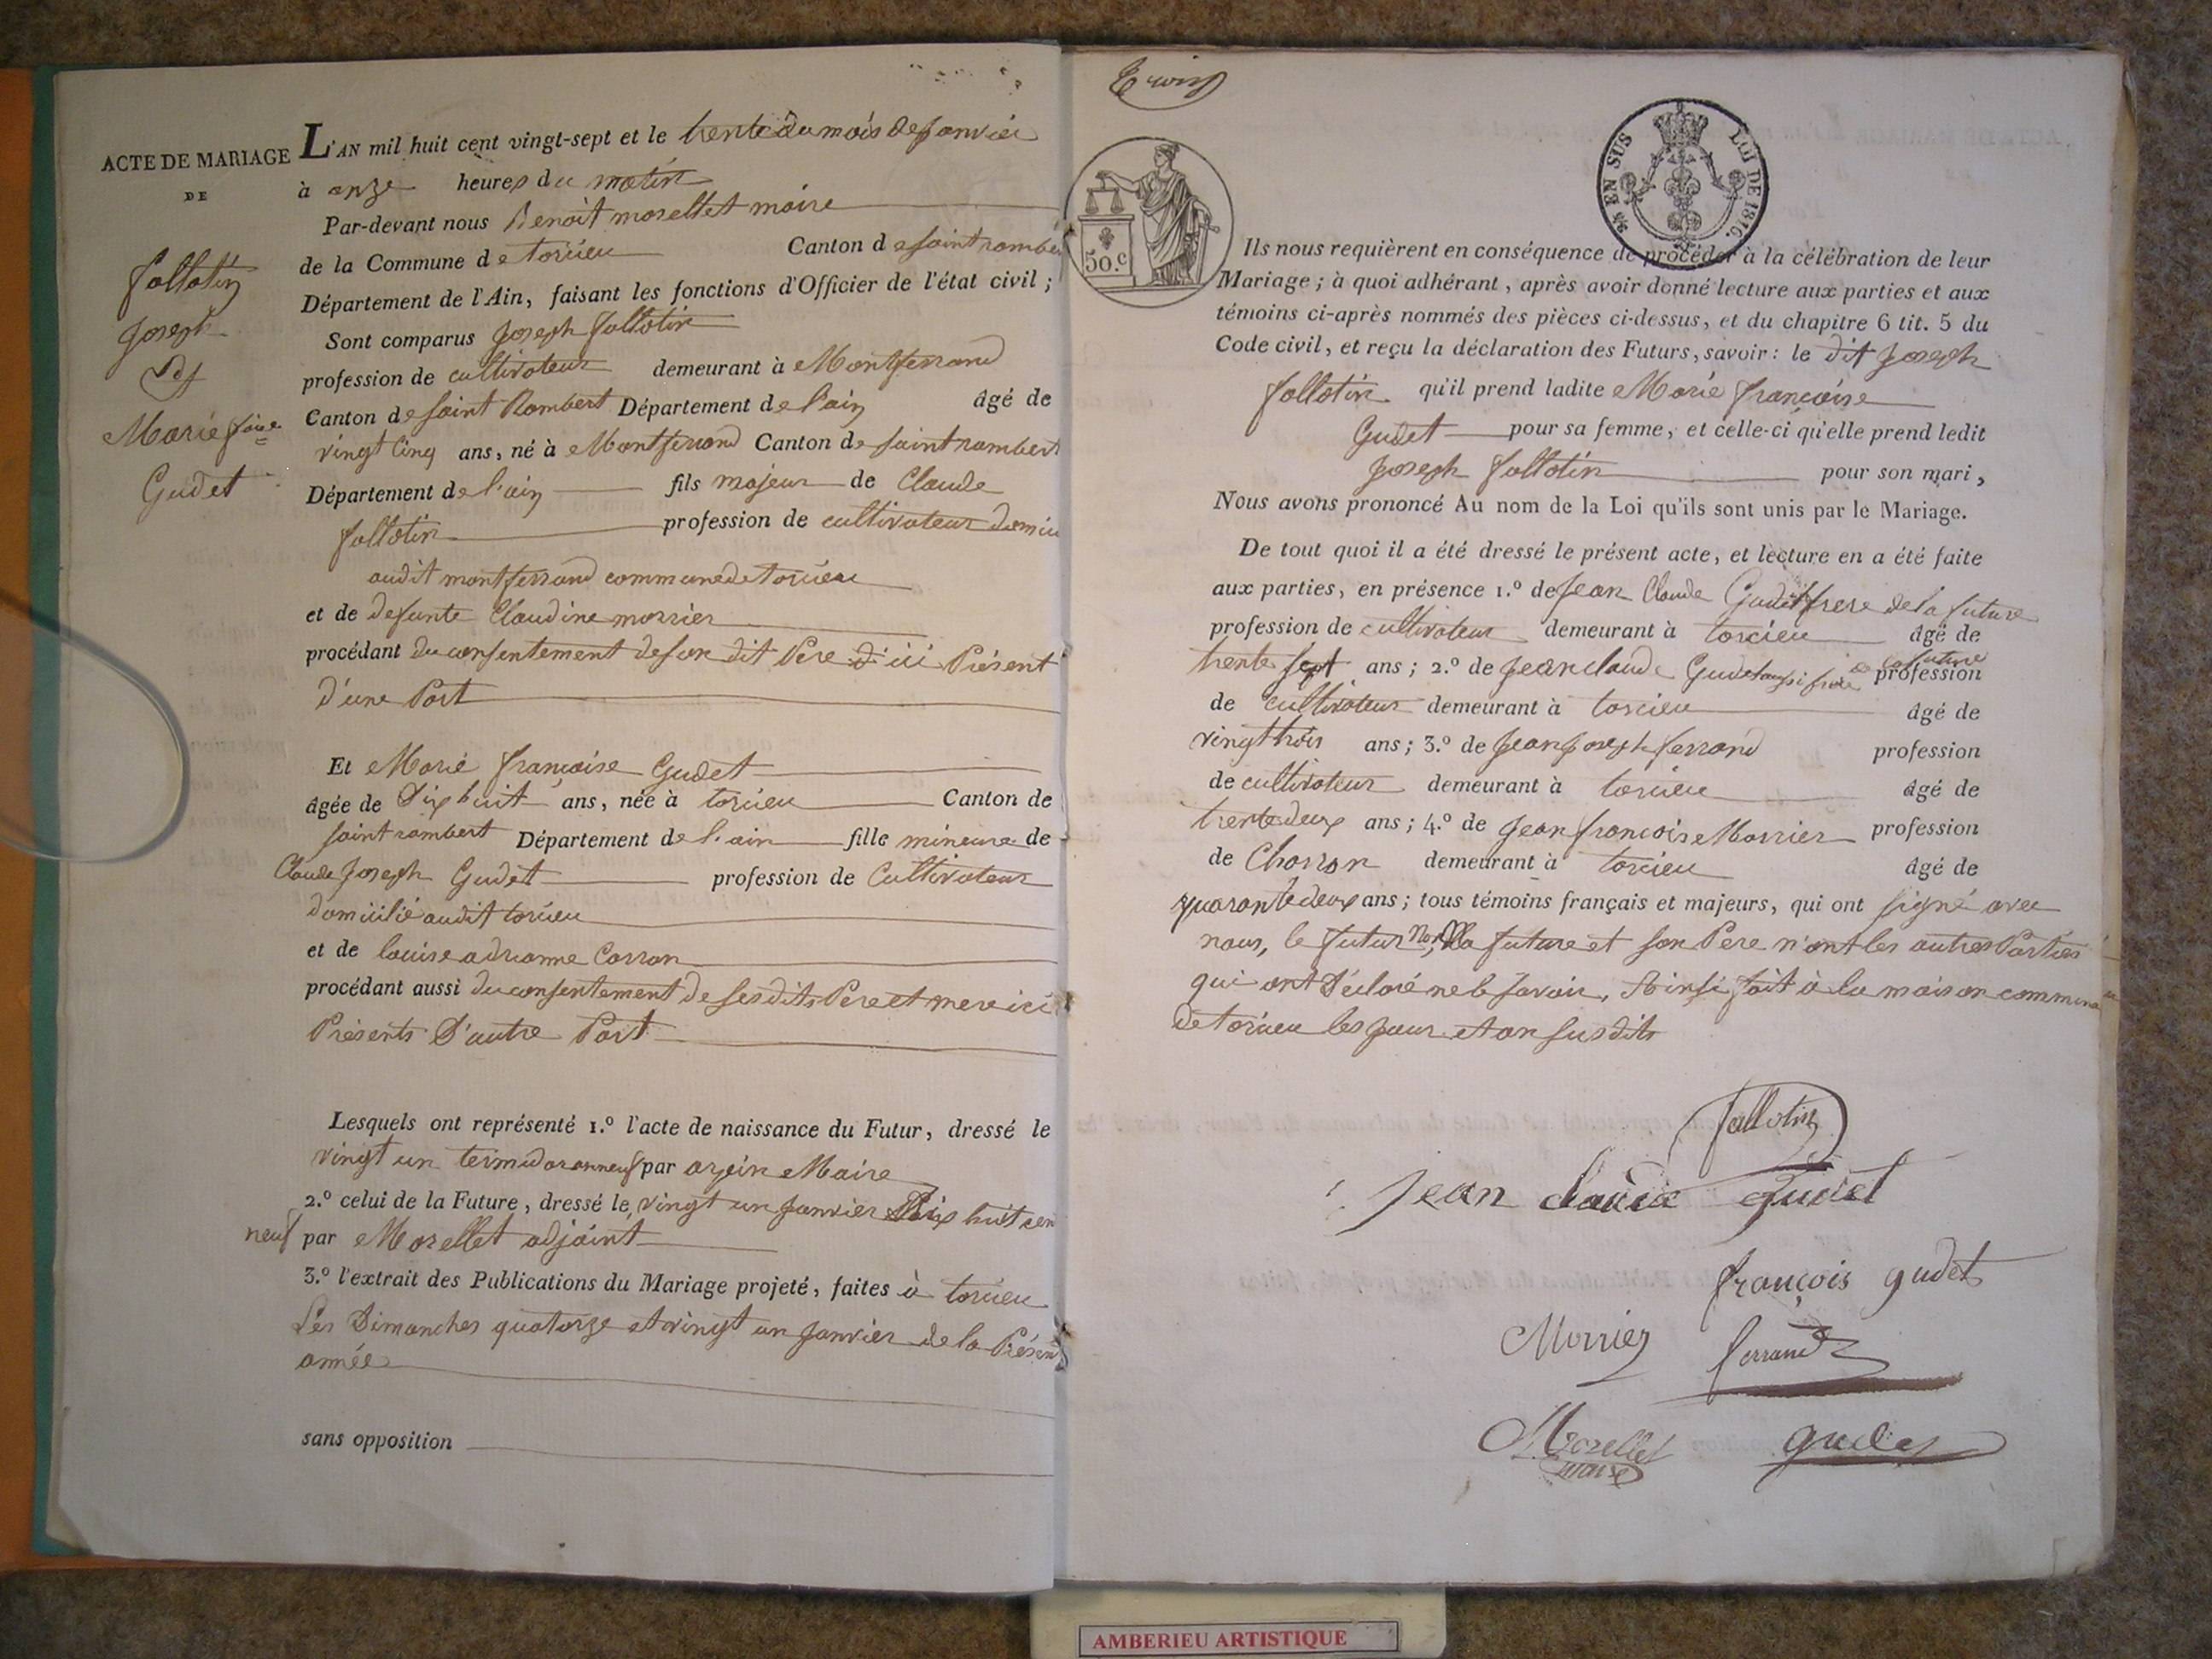 ACTE DE MARIAGE
DE
fallotin
Joseph
Marie f.çoise
Gudet
L'AN mil huit cent vingt-sept et le trente du mois de janvier
à onze heures du matin
Par-devant nous Benoit morellet maire
de la Commune de torcieu Canton de saint rambe
Département de l'Ain, faisant les fonctions d'Officier de l'état civil ;
Sont comparus Joseph fallotin
profession de cultivateur demeurant à Montferrand
Canton de saint Rambert Département de l'ain âgé de
vingt cinq ans, né à Montferrand Canton de saint rambert
Département de l'ain fils majeur de Claude
fallotin profession de cultivateur domici
audit montferrand commune de torcieu
et de defunte Claudine morrier
procédant du consentement de son dit Pere d'ici Présent
d'une Part
Et Marie françoise Gudet
âgée de Dix huit ans, née à torcieu Canton de
saint rambert Département de l'ain fille mineure de
Claude Joseph Gudet profession de Cultivateur
domicilié audit torcieu
et de louise adrianne Carron
procédant aussi du consentement de sesdits Pere et mere ici
Présents D'autre Part
Lesquels ont représenté 1.º l'acte de naissance du Futur, dressé le
vingt un termidor an neuf par Maire
2.º celui de la Future, dressé le vingt un janvier Dix huit cen
neuf par Morellet adjoint
3.º l'extrait des Publications du Mariage projeté, faites à torcieu
Les Dimanches quatorze et vingt un janvier de la Présen
année
sans opposition
Trois
50.c
EN SUS LOI DE 1816.
Ils nous requièrent en conséquence de procéder à la célébration de leur
Mariage ; à quoi adhérant, après avoir donné lecture aux parties et aux
témoins ci-après nommés des pièces ci-dessus, et du chapitre 6 tit. 5 du
Code civil, et reçu la déclaration des Futurs, savoir : le dit Joseph
fallotin qu'il prend ladite Marie françoise
Gudet pour sa femme, et celle-ci qu'elle prend ledit
Joseph fallotin pour son mari,
Nous avons prononcé Au nom de la Loi qu'ils sont unis par le Mariage.
De tout quoi il a été dressé le présent acte, et lecture en a été faite
aux parties, en présence 1.º de Jean Claude Gudet frere de la future
profession de cultivateur demeurant à torcieu âgé de
trente sept ans ; 2.º de Jean claude Gudet aussi frere de la future profession
de cultivateur demeurant à torcieu âgé de
vingt trois ans ; 3.º de Jean Joseph ferrand profession
de cultivateur demeurant à torcieu âgé de
trente deux ans ; 4.º de Jean francois Morrier profession
de Charron demeurant à torcieu âgé de
quarante deux ans ; tous témoins français et majeurs, qui ont signé avec
nous, le futur la future et son Pere n'ont les autres Parties
qui ont Déclaré ne le savoir, Ainsi fait à la maison commune
de torcieu les jour et an susdits
fallotin
Jean claude gudet
françois gudet
Morrier ferrand
Morellet gudet
maire
AMBERIEU ARTISTIQUE